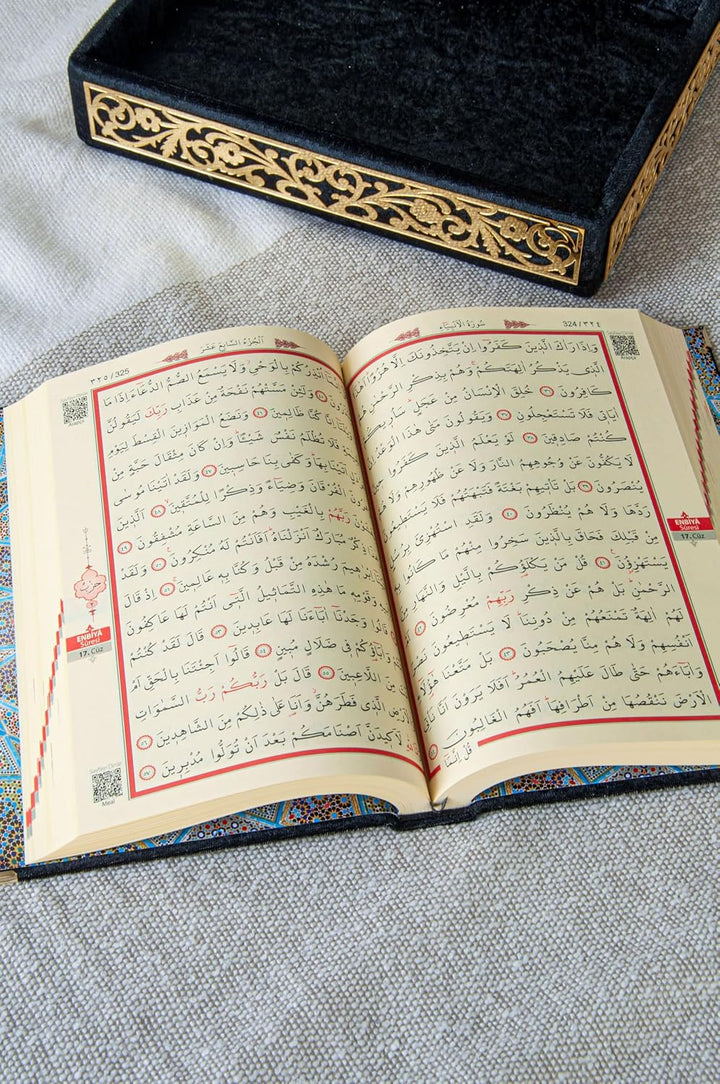 سُورَةُ الْاَنْبِيَٓاءِ 324/٣٢٤
وَاِذَا رَاٰكَ الَّذٖينَ كَفَرُٓوا اِنْ يَتَّخِذُونَكَ اِلَّا هُزُوًا
الَّذٖي يَذْكُرُ اٰلِهَتَكُمْ وَهُمْ بِذِكْرِ الرَّحْمٰنِ
كَافِرُونَ ٣٦ خُلِقَ الْاِنْسَانُ مِنْ عَجَلٍ سَاُرٖيكُمْ
اٰيَاتٖي فَلَا تَسْتَعْجِلُونِ ٣٧ وَيَقُولُونَ مَتٰى هٰذَا الْوَعْدُ
كُنْتُمْ صَادِقٖينَ ٣٨ لَوْ يَعْلَمُ الَّذٖينَ كَفَرُوا
لَا يَكُفُّونَ عَنْ وُجُوهِهِمُ النَّارَ وَلَا عَنْ ظُهُورِهِمْ وَلَا
يُنْصَرُونَ ٣٩ بَلْ تَاْتٖيهِمْ بَغْتَةً فَتَبْهَتُهُمْ فَلَا يَسْتَطٖيعُونَ
رَدَّهَا وَلَا هُمْ يُنْظَرُونَ ٤٠ وَلَقَدِ اسْتُهْزِئَ
مِنْ قَبْلِكَ فَحَاقَ بِالَّذٖينَ سَخِرُوا مِنْهُمْ مَا كَانُوا
يَسْتَهْزِؤُنَ ٤١ قُلْ مَنْ يَكْلَؤُكُمْ بِالَّيْلِ وَالنَّهَارِ
الرَّحْمٰنِ بَلْ هُمْ عَنْ ذِكْرِ رَبِّهِمْ مُعْرِضُونَ ٤٢
لَهُمْ اٰلِهَةٌ تَمْنَعُهُمْ مِنْ دُونِنَا لَا يَسْتَطٖيعُونَ
اَنْفُسِهِمْ وَلَا هُمْ مِنَّا يُصْحَبُونَ ٤٣ بَلْ مَتَّعْنَا هٰٓؤُلَٓاءِ
وَاٰبَٓاءَهُمْ حَتّٰى طَالَ عَلَيْهِمُ الْعُمُرُ اَفَلَا يَرَوْنَ اَنَّا نَاْتِي
الْاَرْضَ نَنْقُصُهَا مِنْ اَطْرَافِهَا اَفَهُمُ الْغَالِبُونَ
قُلْ اِنَّمَٓا
ENBİYA
Sûresi
17. Cüz
اَلْجُزْءُ السَّابِعَ عَشَرَ 325/٣٢٥
اُنْذِرُكُمْ بِالْوَحْيِ وَلَا يَسْمَعُ الصُّمُّ الدُّعَٓاءَ اِذَا مَا
وَلَئِنْ مَسَّتْهُمْ نَفْحَةٌ مِنْ عَذَابِ رَبِّكَ لَيَقُولُنَّ
اِنَّا كُنَّا ظَالِمٖينَ ٤٦ وَنَضَعُ الْمَوَازٖينَ الْقِسْطَ لِيَوْمِ
فَلَا تُظْلَمُ نَفْسٌ شَيْـًٔا وَاِنْ كَانَ مِثْقَالَ حَبَّةٍ مِنْ
اَتَيْنَا بِهَا وَكَفٰى بِنَا حَاسِبٖينَ ٤٧ وَلَقَدْ اٰتَيْنَا مُوسٰى
الْفُرْقَانَ وَضِيَٓاءً وَذِكْرًا لِلْمُتَّقٖينَ ٤٨ اَلَّذٖينَ
رَبَّهُمْ بِالْغَيْبِ وَهُمْ مِنَ السَّاعَةِ مُشْفِقُونَ ٤٩
ذِكْرٌ مُبَارَكٌ اَنْزَلْنَاهُ اَفَاَنْتُمْ لَهُ مُنْكِرُونَ ٥٠ وَلَقَدْ
اِبْرٰهٖيمَ رُشْدَهُ مِنْ قَبْلُ وَكُنَّا بِهٖ عَالِمٖينَ ٥١ اِذْ قَالَ
وَقَوْمِهٖ مَا هٰذِهِ التَّمَاثٖيلُ الَّتٖٓي اَنْتُمْ لَهَا عَاكِفُونَ
وَجَدْنَٓا اٰبَٓاءَنَا لَهَا عَابِدٖينَ ٥٣ قَالَ لَقَدْ كُنْتُمْ
وَاٰبَٓاؤُكُمْ فٖي ضَلَالٍ مُبٖينٍ ٥٤ قَالُٓوا اَجِئْتَنَا بِالْحَقِّ اَمْ
مِنَ اللَّاعِبٖينَ ٥٥ قَالَ بَلْ رَبُّكُمْ رَبُّ السَّمٰوَاتِ
وَالْاَرْضِ الَّذٖي فَطَرَهُنَّ وَاَنَا عَلٰى ذٰلِكُمْ مِنَ الشَّاهِدٖينَ ٥٦
لَاَكٖيدَنَّ اَصْنَامَكُمْ بَعْدَ اَنْ تُوَلُّوا مُدْبِرٖينَ ٥٧
Arapça
ENBİYA
Sûresi
17. Cüz
Meal